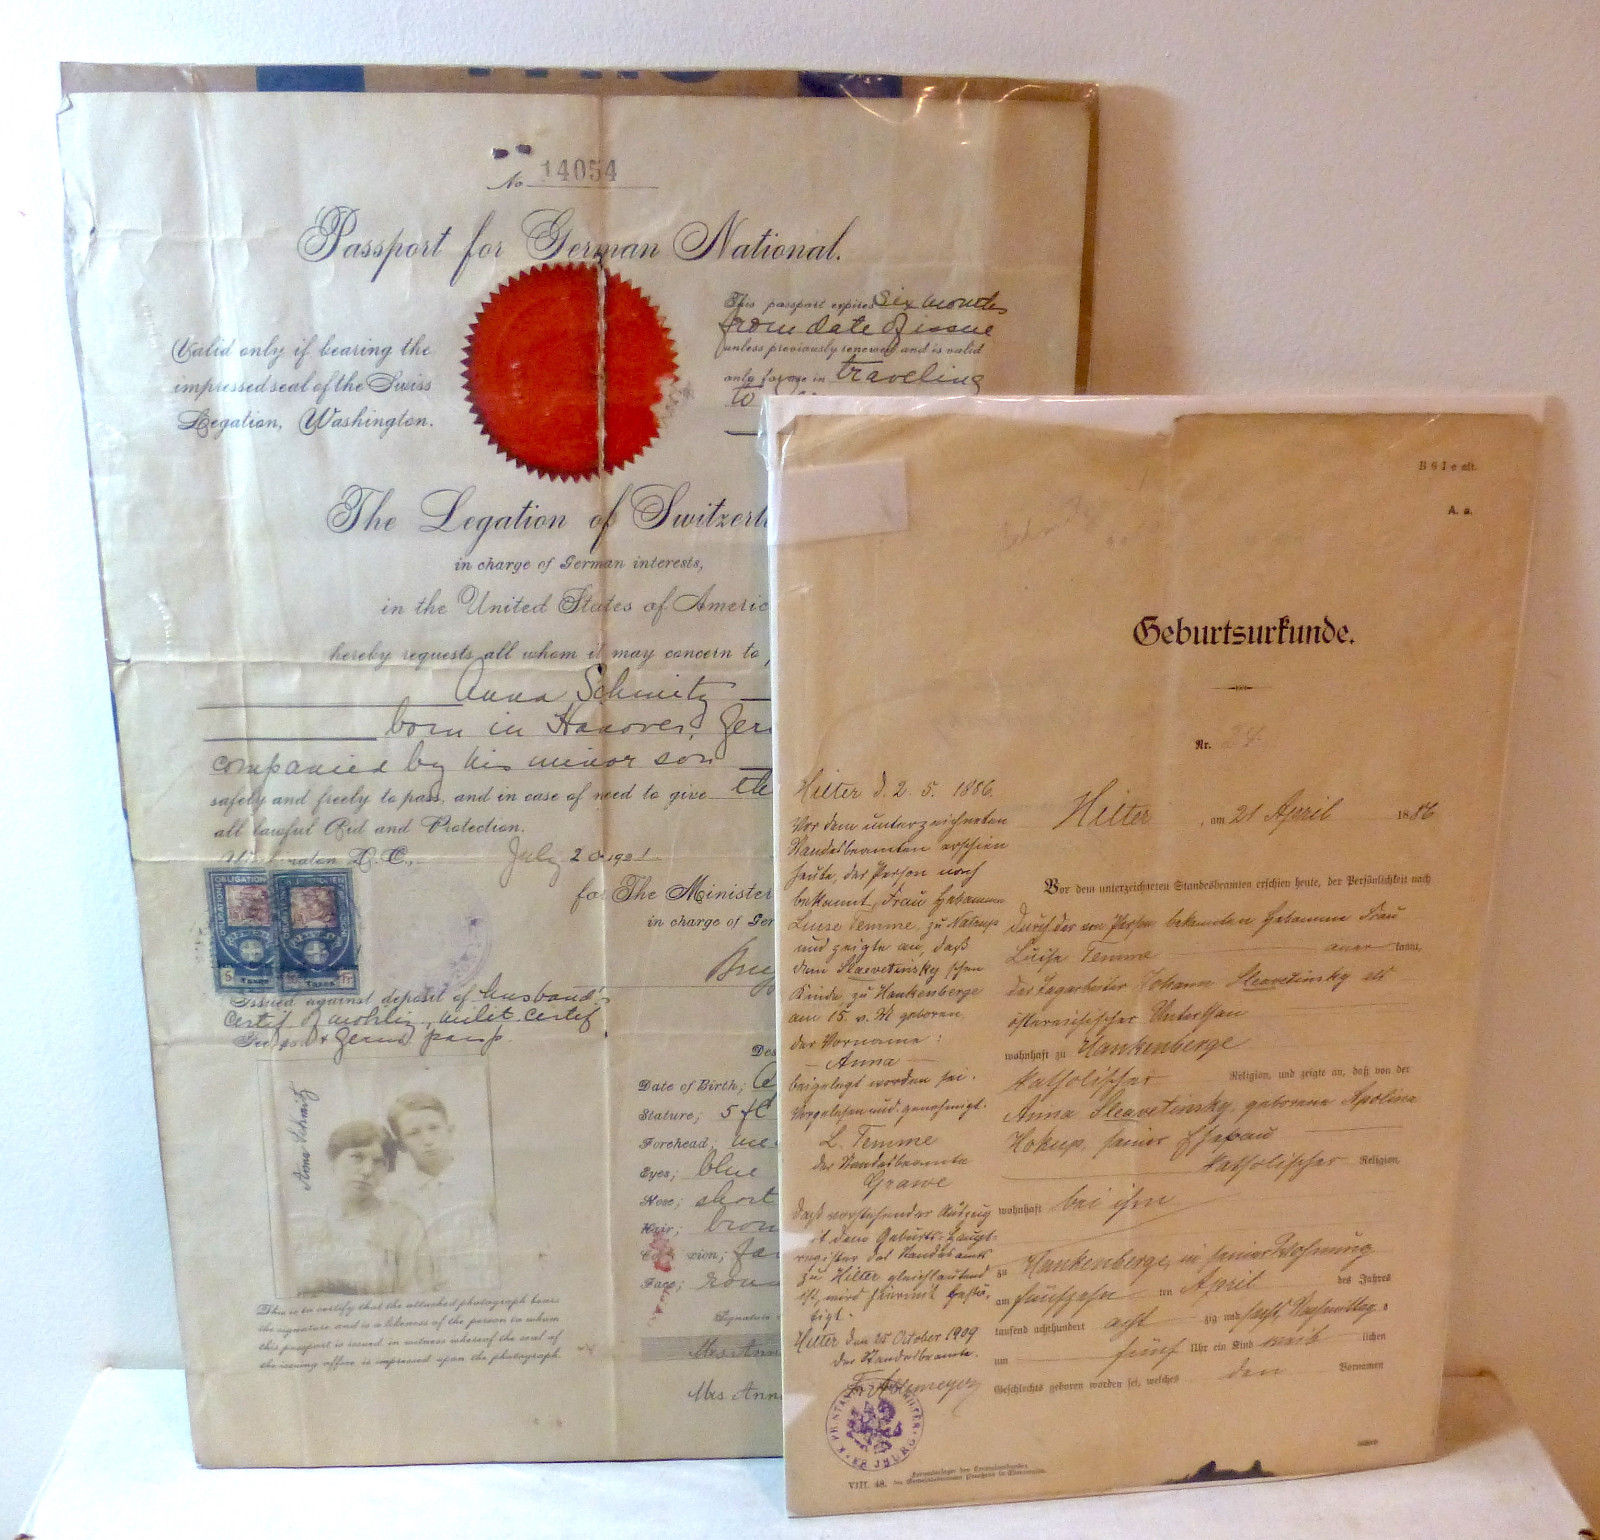 No 14054
Passport for German National.
This passport expires six months
from date of issue
unless previously renewed and is valid
only for use in traveling
to
Valid only if bearing the
impressed seal of the Swiss
Legation, Washington.
The Legation of Switzerl
in charge of German interests,
in the United States of Americ
hereby requests all whom it may concern to
Anna Schmitz
born in Hanover, Ger
companied by his minor son
safely and freely to pass, and in case of need to give
all lawful Aid and Protection.
D.C., July 20 1921
for The Minister
in charge of Ger
Issued against deposit of husband's
Germ. pasp.
Anna Schmitz
Date of Birth;
Stature; 5 ft
Forehead;
Eyes; blue
Nose; short
Hair; brow
Face; roun
Signature
Mrs Ann
Mrs Ann
This is to certify that the attached photograph bears
the signature and is a likeness of the person to whom
this passport is issued in witness whereof the seal of
the issuing office is impressed upon the photograph.
B 6 I e alt.
A. a.
Geburtsurkunde.
Nr. 24
Hilter d. 2. 5. 1886.
Vor dem unterzeichneten
Standesbeamten erschien
heute, der Person nach
bekannt, Frau Hebamme
Luise Temme, zu Natrup
und zeigte an, daß
dem Slacvetinsky schen
Kinde, zu Hankenberge
am 15. v. M. geboren,
der Vorname:
Anna
beigelegt worden sei.
Vorgelesen und genehmigt.
L. Temme
der Standesbeamte
Grawe
Daß vorstehender Auszug
mit dem Geburts-Haupt-
register des Standesamts
zu Hilter gleichlautend
ist, wird hiermit bestä-
tigt.
Hilter den 25 October 1909
der Standesbeamte.
Hilter, am 21 April 1886
Vor dem unterzeichneten Standesbeamten erschien heute, der Persönlichkeit nach
durch der von Person bekannten Hebamme Frau
Luise Temme anerkannt,
der Tagarbeiter Johann Slacvetinsky als
österreichischer Unterthan
wohnhaft zu Hankenberge
katholischer Religion, und zeigte an, daß von der
Anna Slacvetinsky, geborene Apolina
Hokup, seiner Ehefrau
katholischer Religion,
wohnhaft bei ihm
zu Hankenberge, in seiner Wohnung
am fünfzehn ten April des Jahres
tausend achthundert acht zig und sechs, Nachmittags
um fünf Uhr ein Kind weib lichen
Geschlechts geboren worden sei, welches den Vornamen
VIII. 48.